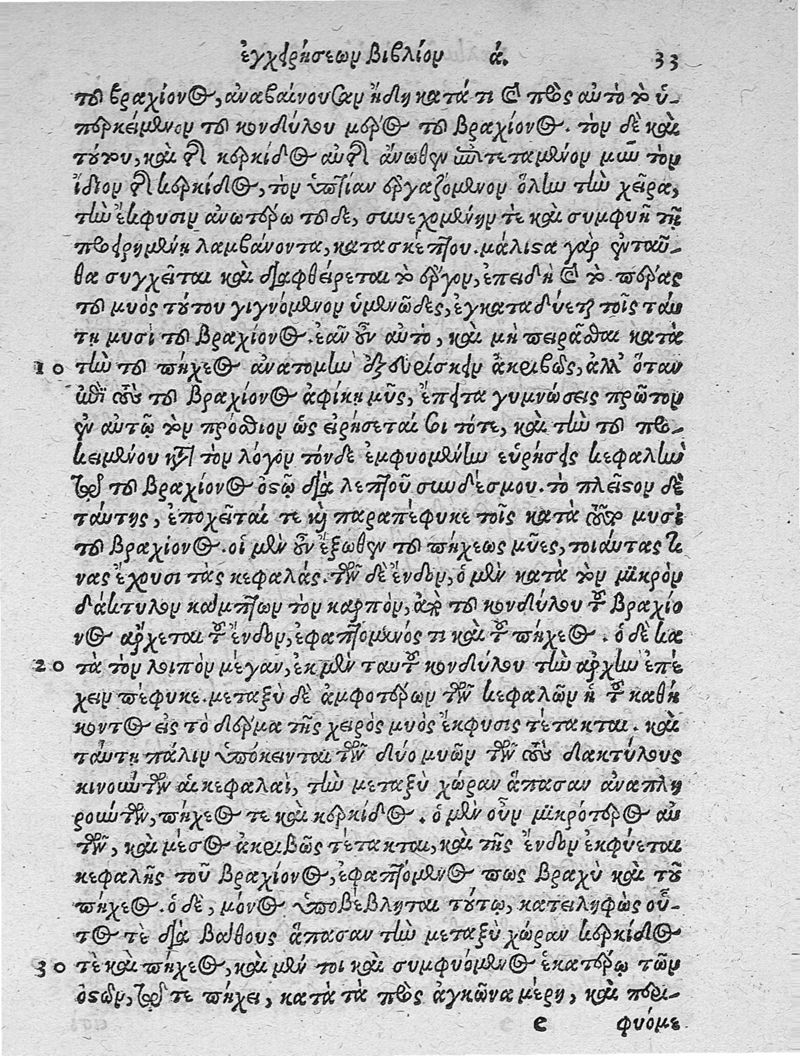 ἐγχειρήσεων βιβλίον ά. 33
τοῦ βραχίονος, ἀναβαίνουσαν ἤδη κατά τι καὶ πρὸς αὐτὸ τὸ ὑ-
περκείμενον τοῦ κονδύλου μέρος τοῦ βραχίονος. τὸν δὲ καὶ
τούτου, καὶ τῆς κερκίδος αὐτῆς ἄνωθεν ἐπιτεταμένον μῦν τὸν
ἴδιον τῆς κερκίδος, τὸν ὑπτίαν ἐργαζόμενον ὅλην τὴν χεῖρα,
τὴν ἔκφυσιν ἀνωτέρω τοῦδε, συνεχομένην τὲ καὶ συμφυῆ τῇ
προειρημένῃ λαμβάνοντα, κατασκέπτου. μάλιστα γὰρ ἐνταῦ-
θα συγχεῖται καὶ διαφθείρεται τὸ ἔργον, ἐπειδὴ καὶ τὸ πέρας
τοῦ μυὸς τούτου γιγνόμενον ὑμενῶδες, ἐγκαταδύεται τοῖς ταύ
τῃ μυσὶ τοῦ βραχίονος. ἐᾶν οὖν αὐτὸ, καὶ μὴ πειρᾶσθαι κατὰ
10 τὴν τοῦ πήχεος ἀνατομὴν ἐξευρίσκειν ἀκριβῶς, ἀλλ' ὅταν
ἐπὶ τοὺς τοῦ βραχίονος ἀφίκῃ μῦς, ἔπειτα γυμνώσεις πρῶτον
ἐν αὐτῷ τὸν πρόσθιον ὡς εἰρήσεταί σοι τότε, καὶ τὴν τοῦ προ-
κειμένου κατὰ τὸν λόγον τόνδε ἐμφυομένην εὑρήσεις κεφαλὴν
τῷ τοῦ βραχίονος ὀστῷ διὰ λεπτοῦ συνδέσμου. τὸ πλεῖστον δὲ
ταύτης, ἐποχεῖταί τε καὶ παραπέφυκε τοῖς κατὰ τοῦτο μυσὶ
τοῦ βραχίονος. οἱ μὲν οὖν ἔξωθεν τοῦ πήχεως μῦες, τοιαύτας τι
νας ἔχουσι τὰς κεφαλάς. τῶν δὲ ἔνδον, ὁ μὲν κατὰ τὸν μικρὸν
δάκτυλον κάμπτων τὸν καρπὸν, ἀπὸ τοῦ κονδύλου τοῦ βραχίο
νος ἄρχεται τοῦ ἔνδον, ἐφαπτόμενός τι καὶ τοῦ πήχεος. ὁ δὲ κα
20 τὰ τὸν λοιπὸν μέγαν, ἐκ μὲν ταυτοῦ κονδύλου τὴν ἀρχὴν ἐπέ
χειν πέφυκε. μεταξὺ δὲ ἀμφοτέρων τῶν κεφαλῶν ἡ τοῦ καθή
κοντος εἰς τὸ δέρμα τῆς χειρὸς μυὸς ἔκφυσις τέτακται. καὶ
ταύτῃ πάλιν ὑπόκεινται τῶν δύο μυῶν τῶν τοὺς δακτύλους
κινούντων αἱ κεφαλαὶ, τὴν μεταξὺ χώραν ἅπασαν ἀναπλη
ρούντων, πήχεος τε καὶ κερκίδος. ὁ μὲν οὖν μικρότερος αὐ
τῶν, καὶ μέσος ἀκριβῶς τέτακται, καὶ τῆς ἔνδον ἐκφύεται
κεφαλῆς τοῦ βραχίονος, ἐφαπτόμενος πως βραχὺ καὶ τοῦ
πήχεος. ὁ δὲ, μόνος ὑποβέβληται τούτῳ, κατειληφὼς οὗ-
τος τὲ διὰ βάθους ἅπασαν τὴν μεταξὺ χώραν κερκίδος
30 τὲ καὶ πήχεος, καὶ μέν τοι καὶ συμφυόμενος ἑκατέρῳ τῶν
ὀστῶν, τῷ τε πήχει, κατὰ τὰ πρὸς ἀγκῶνα μέρη, καὶ περι-
e φυόμε